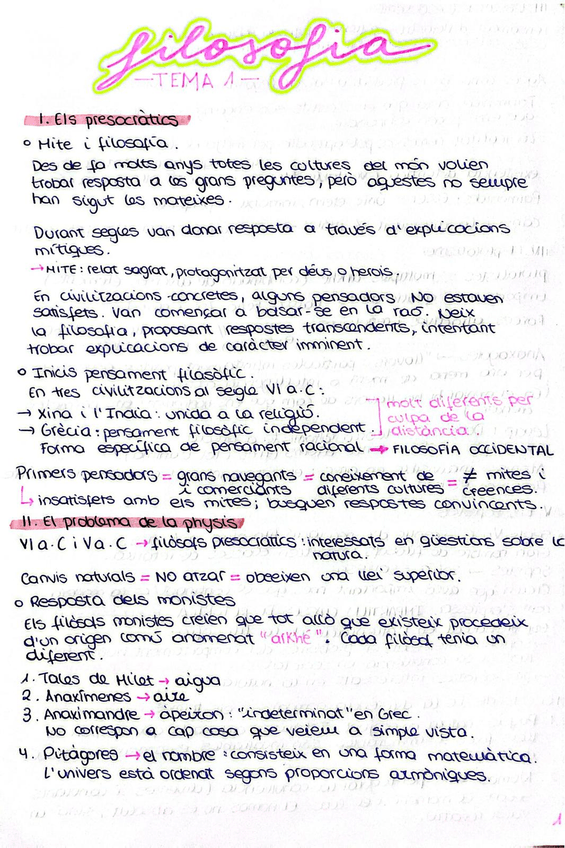 filosofia
—TEMA 1—
I. Els presocràtics
○ Mite i filosofía.
Des de fa molts anys totes les cultures del món volien
trobar resposta a les grans preguntes, però aquestes no sempre
han sigut les mateixes.
Durant segles van donar resposta a través d'explicacions
mítiques.
→ MITE: relat sagrat, protagonitzat per déus o herois.
En civilitzacions concretes, alguns pensadors NO estaven
satisfets. Van començar a basar-se en la raó. Neix
la filosofia, proposant respostes transcendents, intentant
trobar explicacions de caràcter imminent.
○ Inicis pensament filosòfic.
En tres civilitzacions al segle VI a.C:
→ Xina i l'India: unida a la religió.
→ Grècia: pensament filosòfic independent.
molt diferents per
culpa de la
distància.
Forma específica de pensament racional → FILOSOFÍA OCCIDENTAL
Primers pensadors = grans navegants = coneixement de = ≠ mites i
i comerciants diferents cultures creences.
↳ insatisfets amb els mites; busquen respostes convincents.
II. El problema de la physis
VI a.C i V a.C → filòsofs presocràtics: interessats en qüestions sobre la
natura.
Canvis naturals = NO atzar = obeeixen una llei superior.
○ Resposta dels monistes
Els filòsofs monistes creien que tot allò que existeix procedeix
d'un origen comú anomenat "arkhé". Cada filòsof tenia un
diferent.
1. Tales de Milet → aigua
2. Anaxímenes → aire
3. Anaximandre → àpeiron: "indeterminat" en Grec.
No correspon a cap cosa que veiem a simple vista.
4. Pitàgores → el nombre: consisteix en una forma matemàtica.
L'univers està ordenat segons proporcions harmòniques.
1